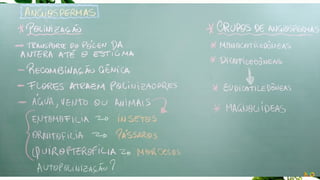 ANGIOSPERMAS
* POLINIZAÇÃO
- TRANSPORTE DO PÓLEN DA
ANTERA ATÉ O ESTIGMA
- RECOMBINAÇÃO GÊNICA
- FLORES ATRAEM POLINIZADORES
- ÁGUA, VENTO OU ANIMAIS
ENTOMOFILIA => INSETOS
ORNITOFILIA => PÁSSAROS
QUIROPTEROFILIA => MORCEGOS
AUTOPOLINIZAÇÃO?
* GRUPOS DE ANGIOSPERMAS
* MONOCOTILEDÔNEAS
* DICOTILEDÔNEAS
* EUDICOTILEDÔNEAS
* MAGNOLIÍDEAS